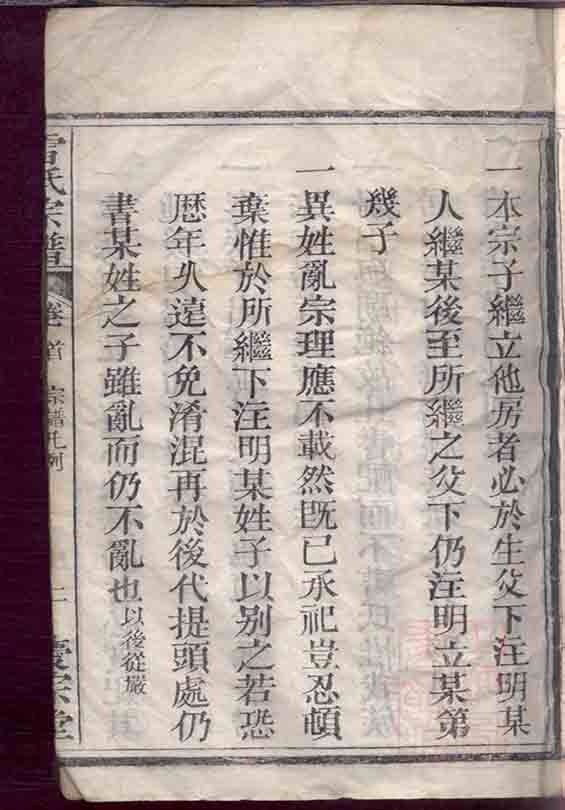 一本宗子繼立他房者必於生父下注明某
人繼某後至所繼之父下仍注明立某第
幾子
一異姓亂宗理應不載然既已承祀豈忍頓
棄惟於所繼下注明某姓子以别之若恐
歴年久遠不免淆混再於後代提頭處仍
書某姓之子雖亂而仍不亂也以後從嚴
氏宗譜 卷首 宗譜凡例 二 慶宗堂